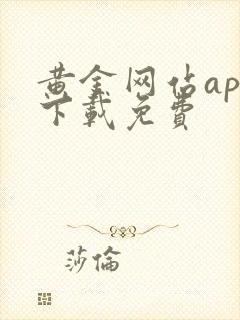 黄金网站ap
下载免费
莎倫